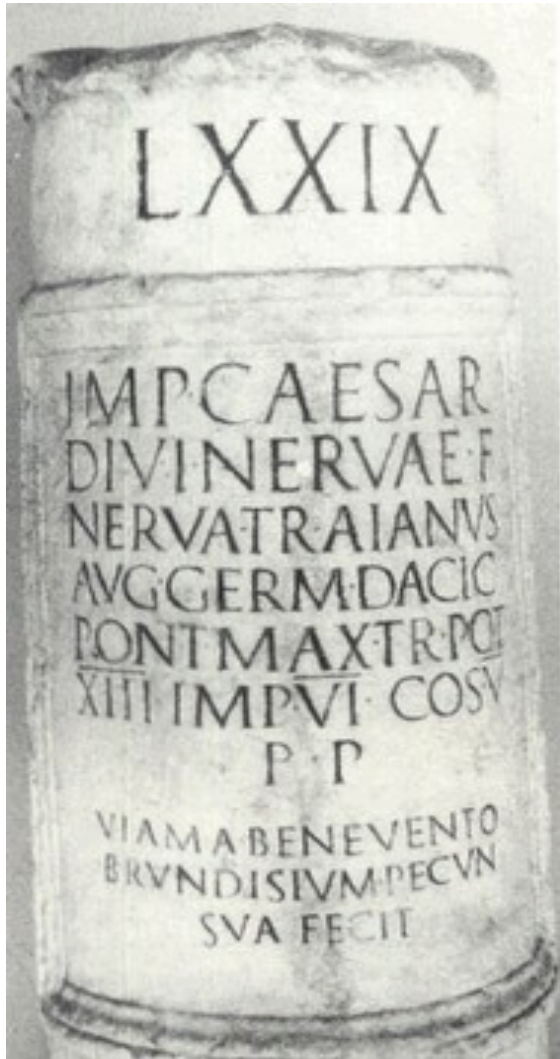 LXXIX
IMP·CAESAR
DIVI·NERVAE·F
NERVA·TRAIANVS
AVG·GERM·DACIC
PONT·MAX·TR·POT
XIIII·IMP·VI·COS·V
P·P
VIAM·A·BENEVENTO
BRVNDISIVM·PECVN
SVA FECIT